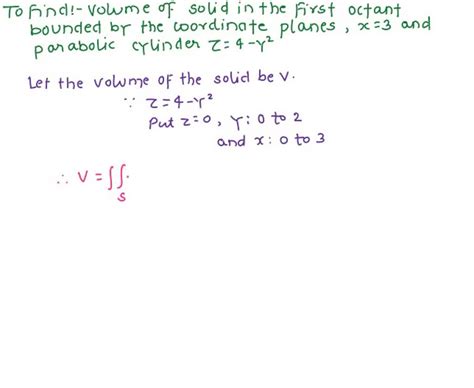 To Find:- Volume of solid in the first octant
bounded by the coordinate planes, x=3 and
parabolic cylinder z=4-y²
Let the volume of the solid be V.
∵ z=4-y²
Put z=0, y: 0 to 2
and x: 0 to 3
∴ V = ∬
S